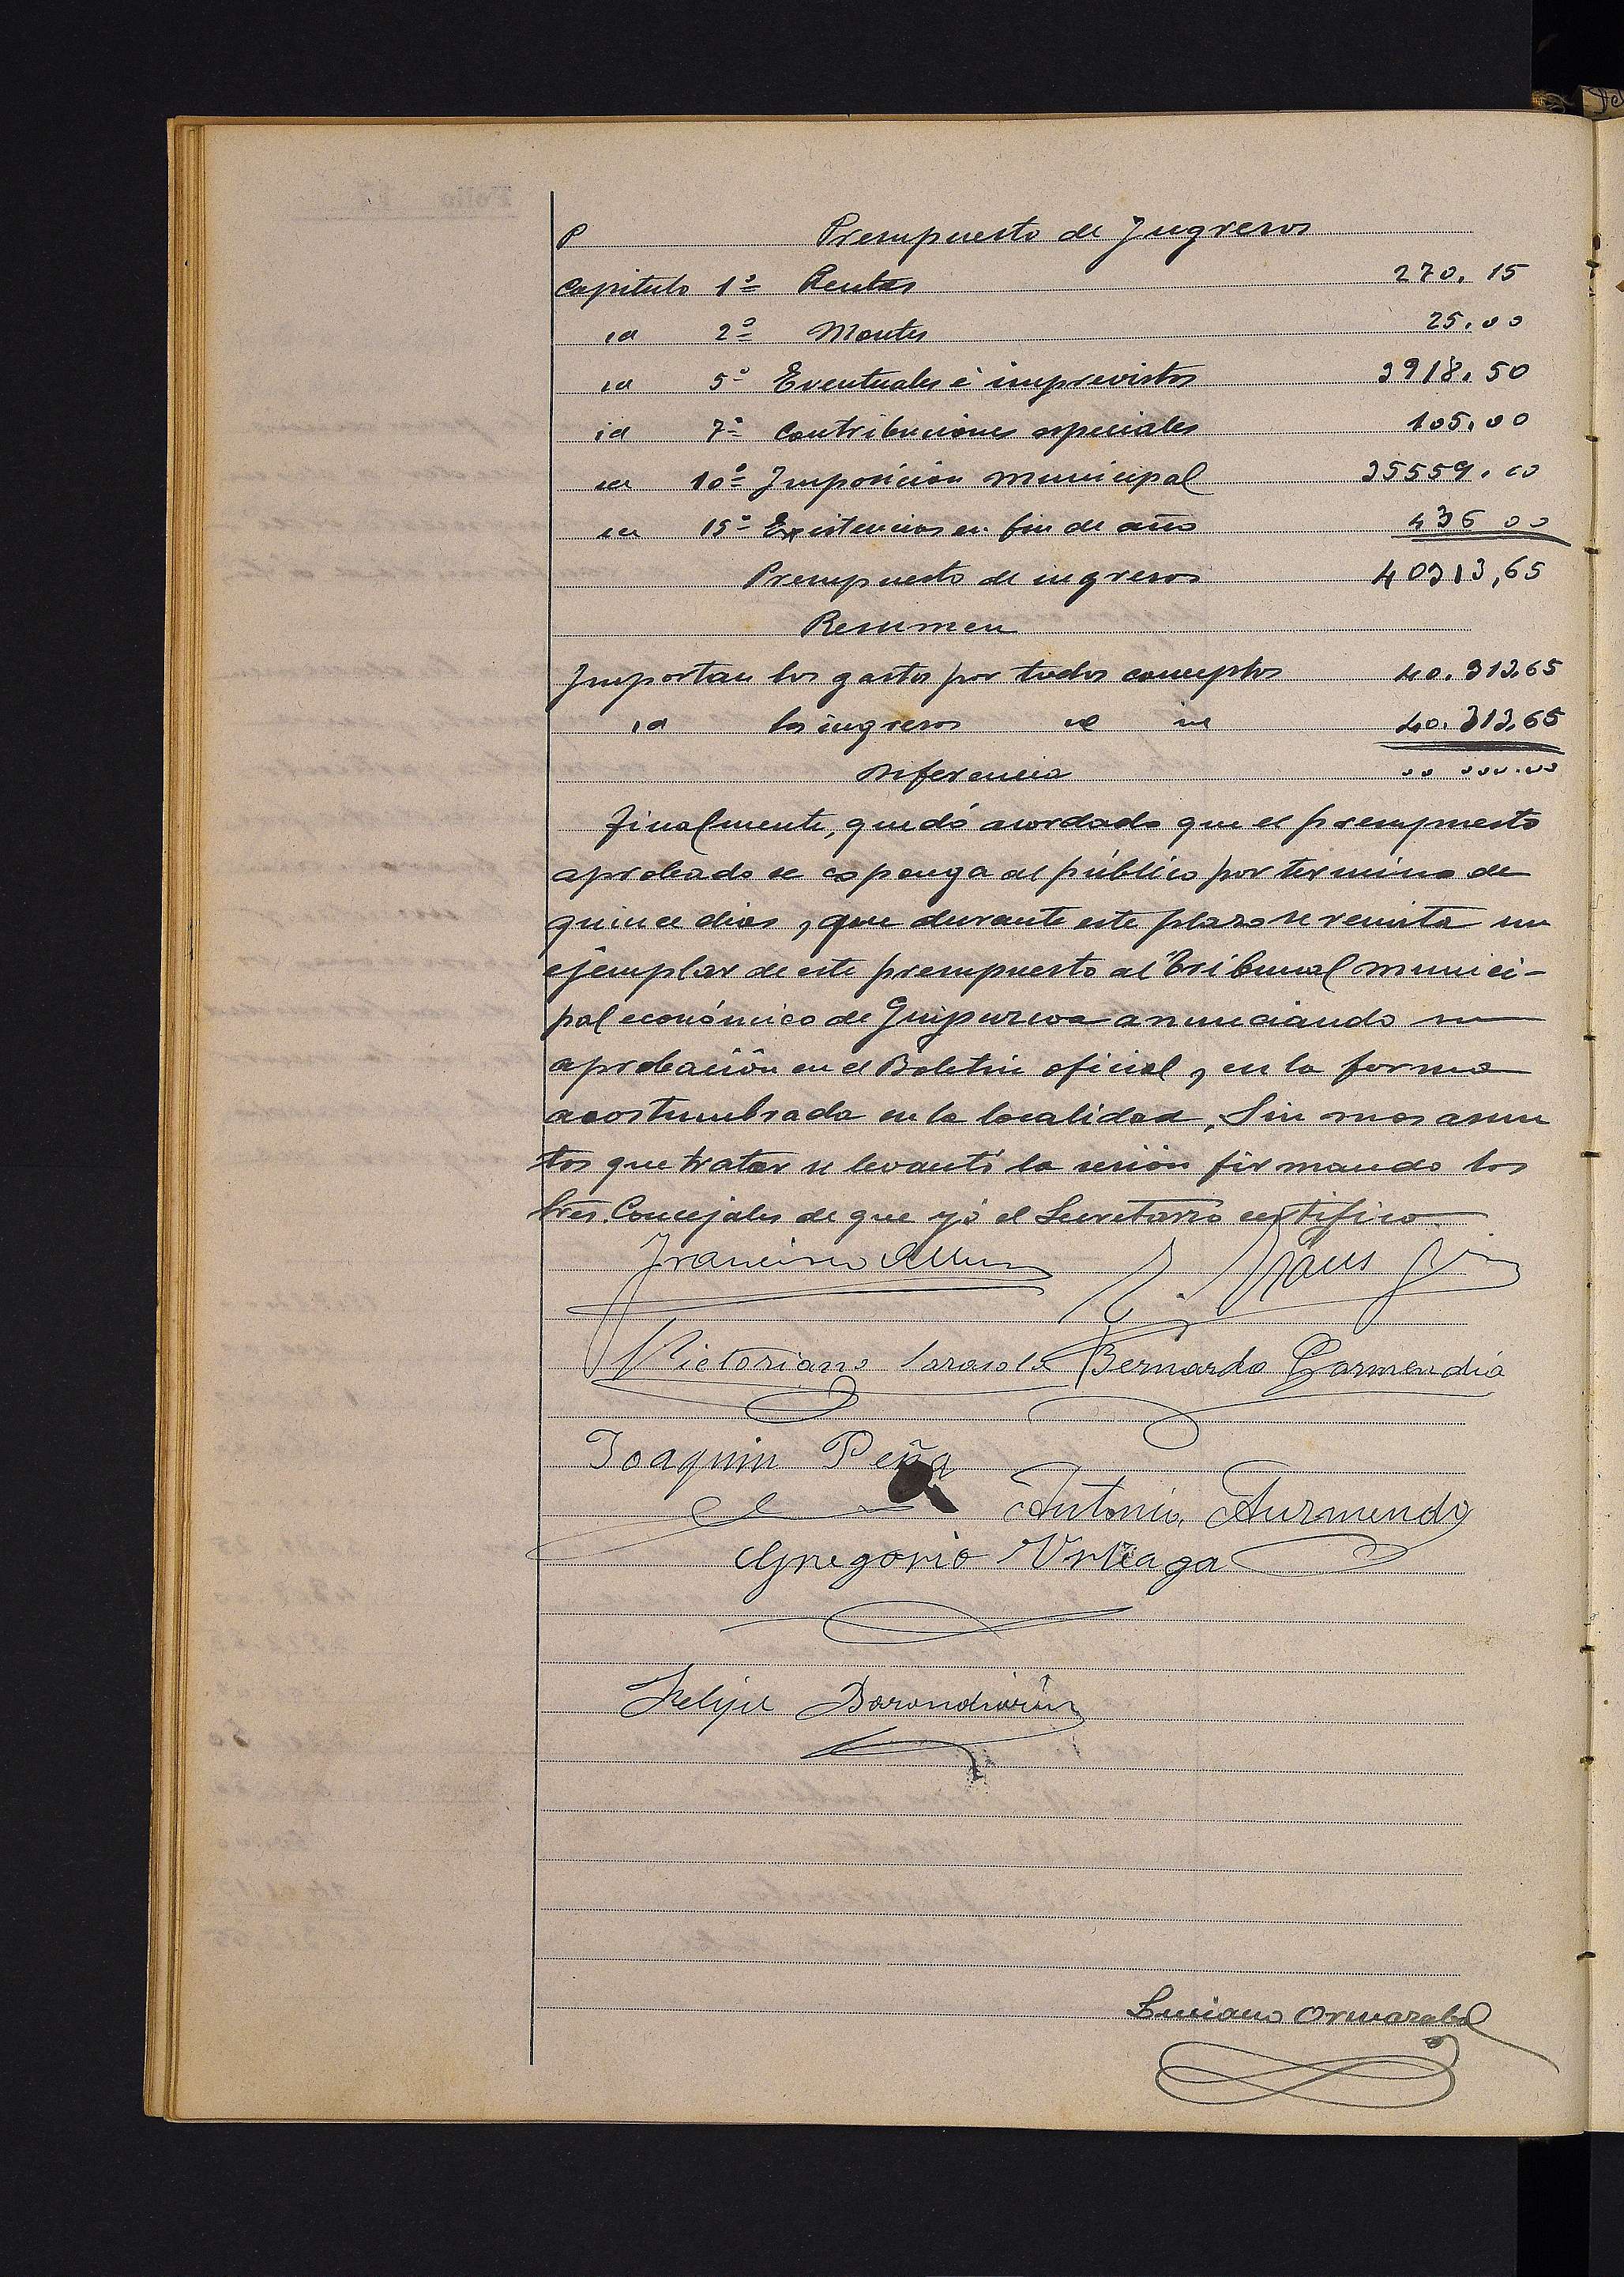 P Presupuesto de Ingresos
Capitulo 1º Rentas 270.15
id 2º Montes 25.00
id 5º Eventuales é imprevistos 3918.50
id 7º Contribuciones especiales 105.00
id 10º Imposición municipal 35559.00
id 15º Existencias en fin de año 436 00
Presupuesto de ingresos 40313,65
Resumen
Importan los gastos por todos conceptos 40.313,65
id los ingresos id id 40.313,65
Diferencia 00 000.00
Finalmente, quedó acordado que el presupuesto
aprobado se esponga al público por termino de
quince dias, que durante este plazo se remita un
ejemplar de este presupuesto al Tribunal munici-
pal económico de Guipuzcoa anunciando su
aprobación en el Boletin oficial y en la forma
acostumbrada en la localidad. Sin mas asun
tos que tratar se levantó la sesion firmando los
tres Concejales de que yó el Secretario certifico.
Francisco
Victoriano Sarasola Bernardo Garmendia
Joaquin Peña
Antonio Aurmendy
Gregorio Urteaga
Felipe Barandiarán
Luciano Ormazabal